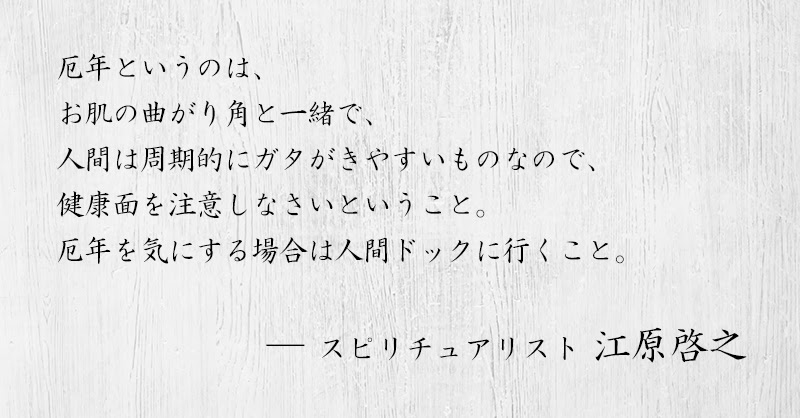 厄年というのは、
お肌の曲がり角と一緒で、
人間は周期的にガタがきやすいものなので、
健康面を注意しなさいということ。
厄年を気にする場合は人間ドックに行くこと。
― スピリチュアリスト 江原啓之